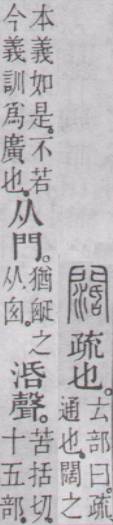 闊疏也。𠫓部曰。疏
通也。闊之
本義如是。不若
今義訓爲廣也。
从門。猶之
从囱。
聲。苦括切。
十五部。